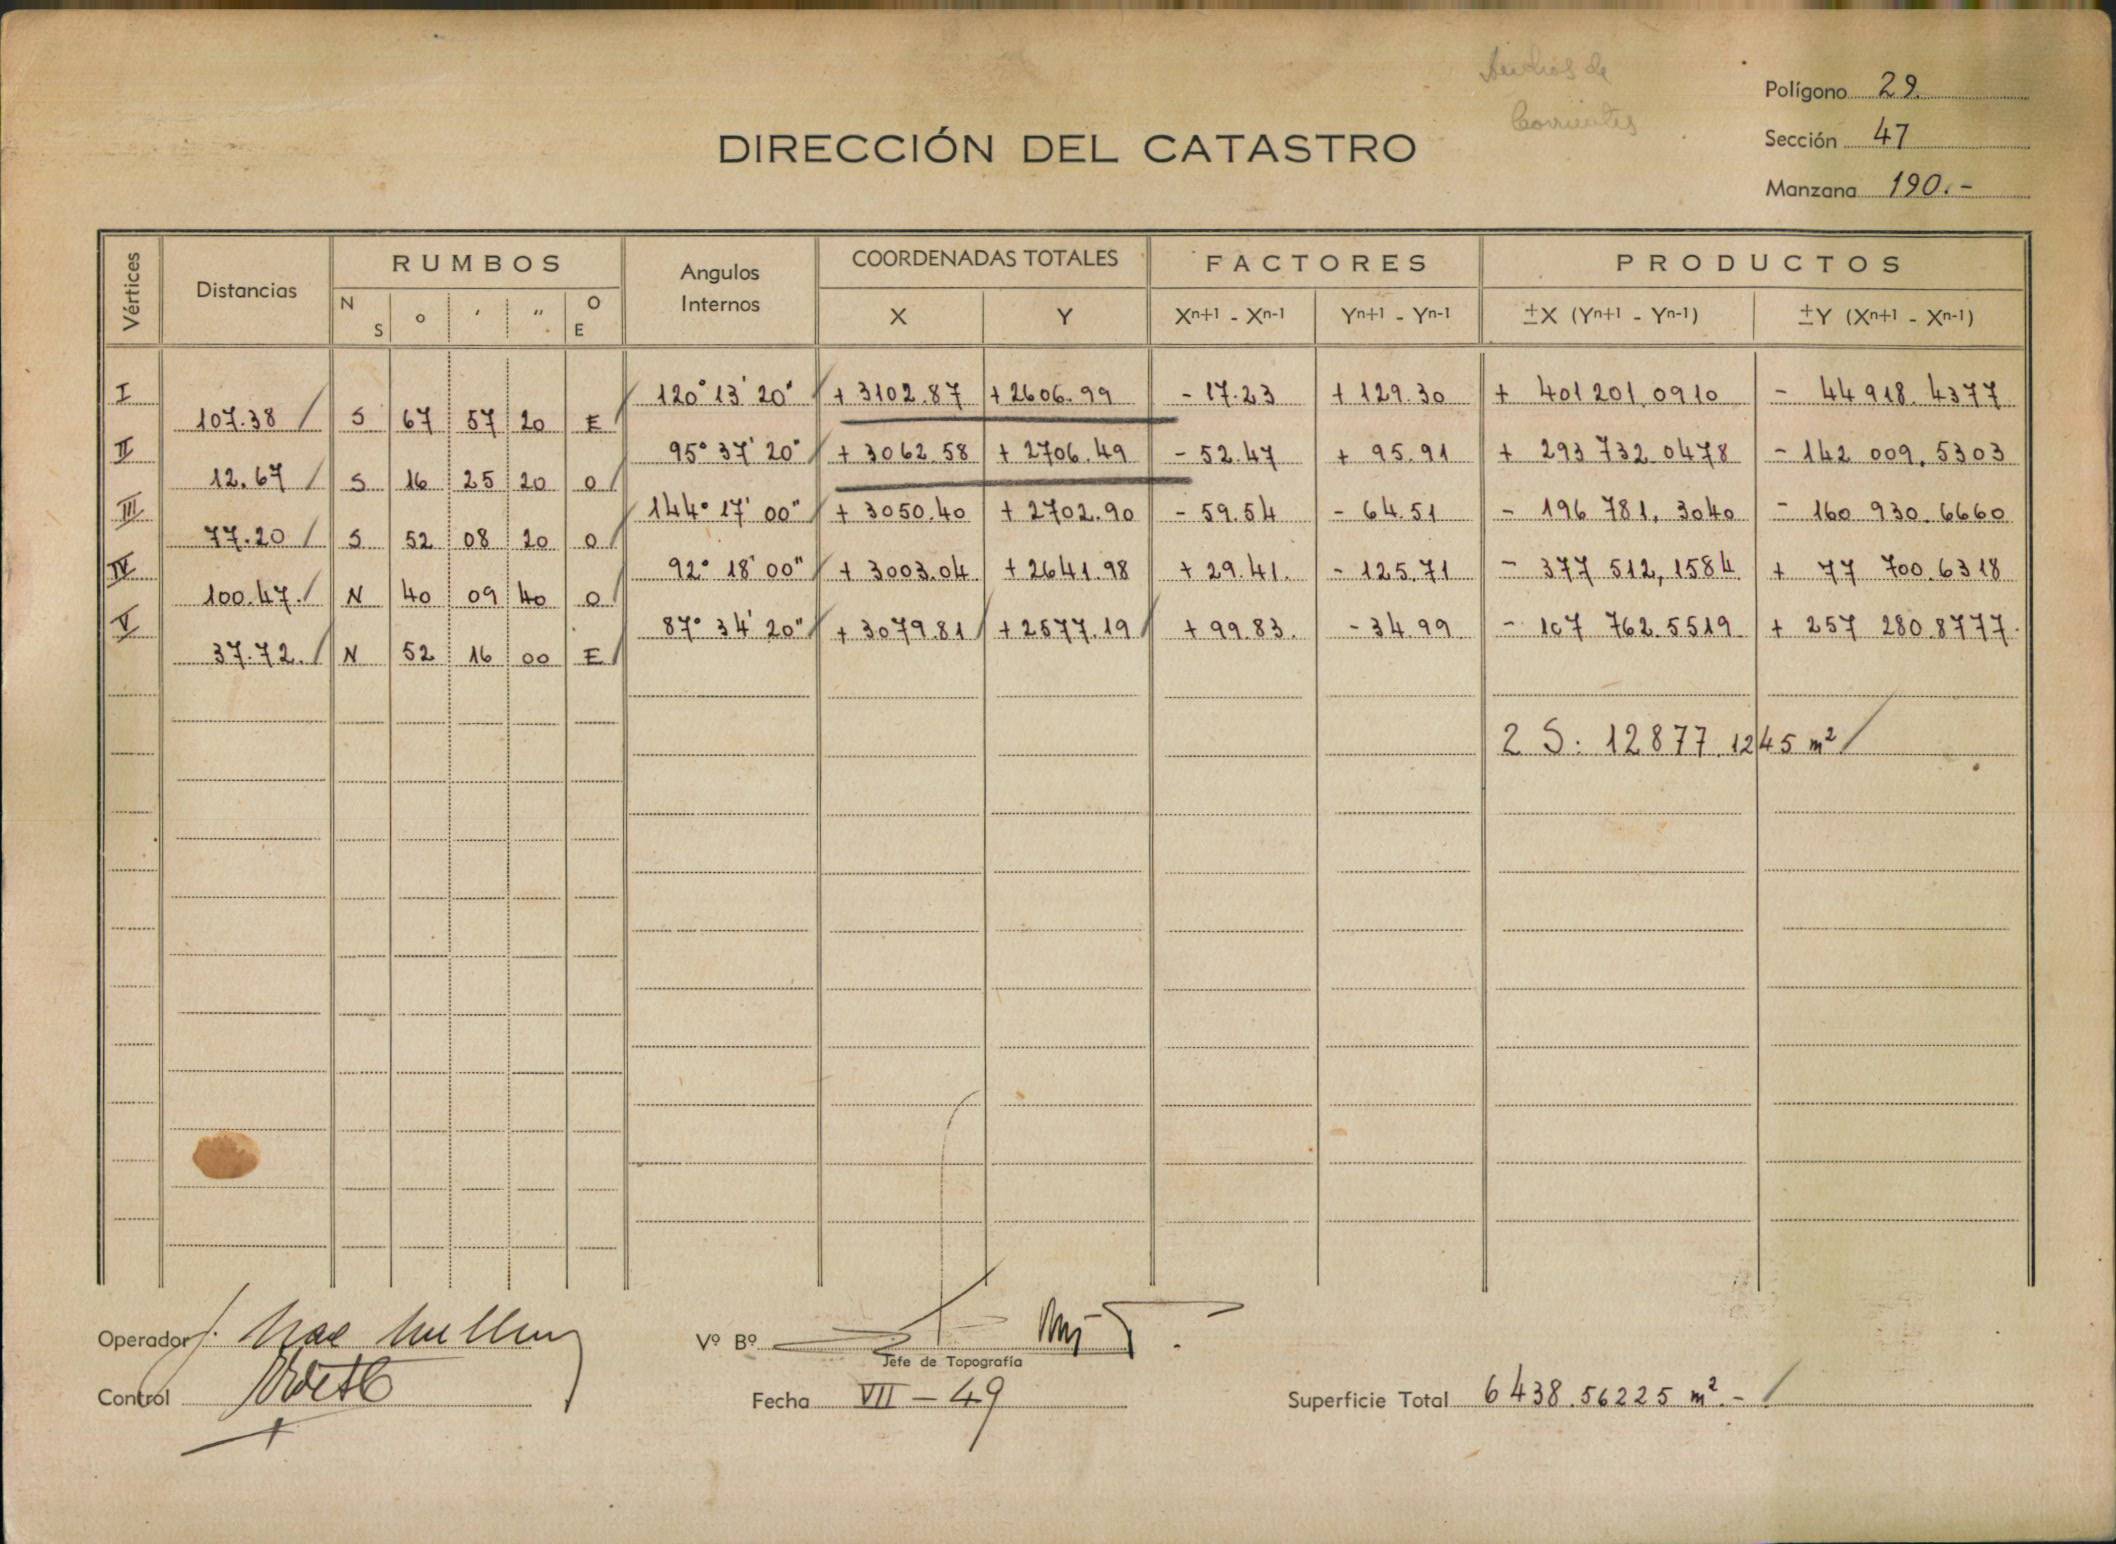 Polígono 29.
Sección 47
Manzana 190.-
DIRECCIÓN DEL CATASTRO
Vértices Distancias RUMBOS Angulos Internos COORDENADAS TOTALES FACTORES PRODUCTOS
N S ° ' " O E X Y Xn+1 - Xn-1 Yn+1 - Yn-1 ±X (Yn+1 - Yn-1) ±Y (Xn+1 - Xn-1)
I 120° 13' 20" + 3102.87 + 2606.99 - 17.23 + 129.30 + 401 201.0910 - 44 918.4377
107.38 S 67 57 20 E
II 95° 37' 20" + 3062.58 + 2706.49 - 52.47 + 95.91 + 293 732.0478 - 142 009.5303
12.67 S 16 25 20 O
III 144° 17' 00" + 3050.40 + 2702.90 - 59.54 - 64.51 - 196 781,3040 - 160 930.6660
77.20 S 52 08 20 O
IV 92° 18' 00" + 3003.04 + 2641.98 + 29.41. - 125.71 - 377 512,1584 + 77 700.6318
100.47. N 40 09 40 O
V 87° 34' 20" + 3079.81 + 2577.19 + 99.83. - 34.99 - 107 762.5519 + 257 280.8777.
37.72. N 52 16 00 E
2 S: 12877.1245 m²
Operador
Vº Bº
Jefe de Topografía
Control
Fecha VII - 49
Superficie Total 6438.56225 m².-